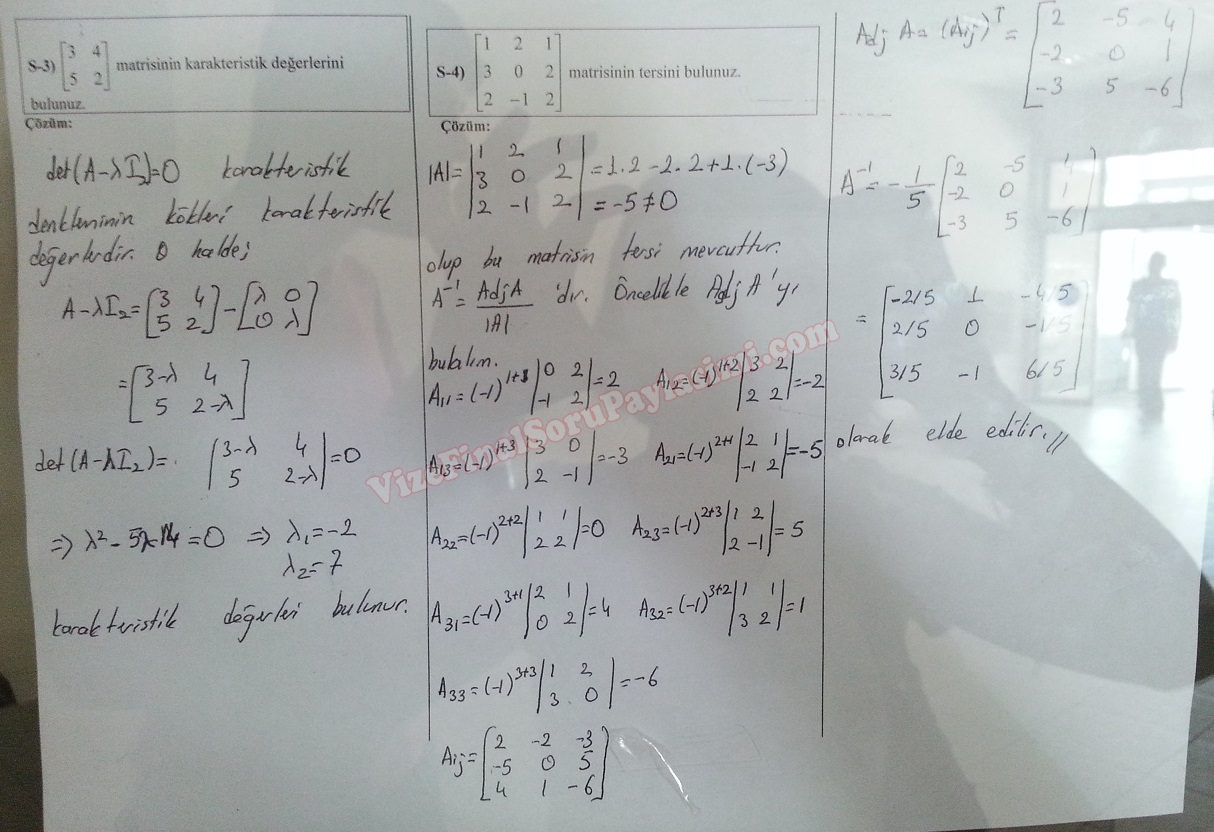 S-3) [3 4; 5 2] matrisinin karakteristik değerlerini
bulunuz.
Çözüm:
det(A-λI₂)=0 karakteristik
denkleminin kökleri karakteristik
değerlerdir. O halde;
A-λI₂ = [3 4; 5 2] - [λ 0; 0 λ]
= [3-λ 4; 5 2-λ]
det(A-λI₂)= |3-λ 4; 5 2-λ| = 0
⇒ λ² - 5λ - 14 = 0 ⇒ λ₁ = -2
λ₂ = 7
karakteristik değerleri bulunur.
S-4) [1 2 1; 3 0 2; 2 -1 2] matrisinin tersini bulunuz.
Çözüm:
|A| = |1 2 1; 3 0 2; 2 -1 2| = 1.2 - 2.2 + 1.(-3)
= -5 ≠ 0
olup bu matrisin tersi mevcuttur.
A⁻¹ = AdjA / |A| 'dır. Öncelikle Adj A'yı
bulalım.
A₁₁ = (-1)¹⁺¹ |0 2; -1 2| = 2 A₁₂ = (-1)¹⁺² |3 2; 2 2| = -2
A₁₃ = (-1)¹⁺³ |3 0; 2 -1| = -3 A₂₁ = (-1)²⁺¹ |2 1; -1 2| = -5
A₂₂ = (-1)²⁺² |1 1; 2 2| = 0 A₂₃ = (-1)²⁺³ |1 2; 2 -1| = 5
A₃₁ = (-1)³⁺¹ |2 1; 0 2| = 4 A₃₂ = (-1)³⁺² |1 1; 3 2| = 1
A₃₃ = (-1)³⁺³ |1 2; 3 0| = -6
Aij = [2 -2 -3; -5 0 5; 4 1 -6]
Adj A = (Aij)ᵀ = [2 -5 4; -2 0 1; -3 5 -6]
A⁻¹ = - 1/5 [2 -5 4; -2 0 1; -3 5 -6]
= [-2/5 1 -4/5; 2/5 0 -1/5; 3/5 -1 6/5]
olarak elde edilir.//
VizeFinalSoruPaylasimi.com